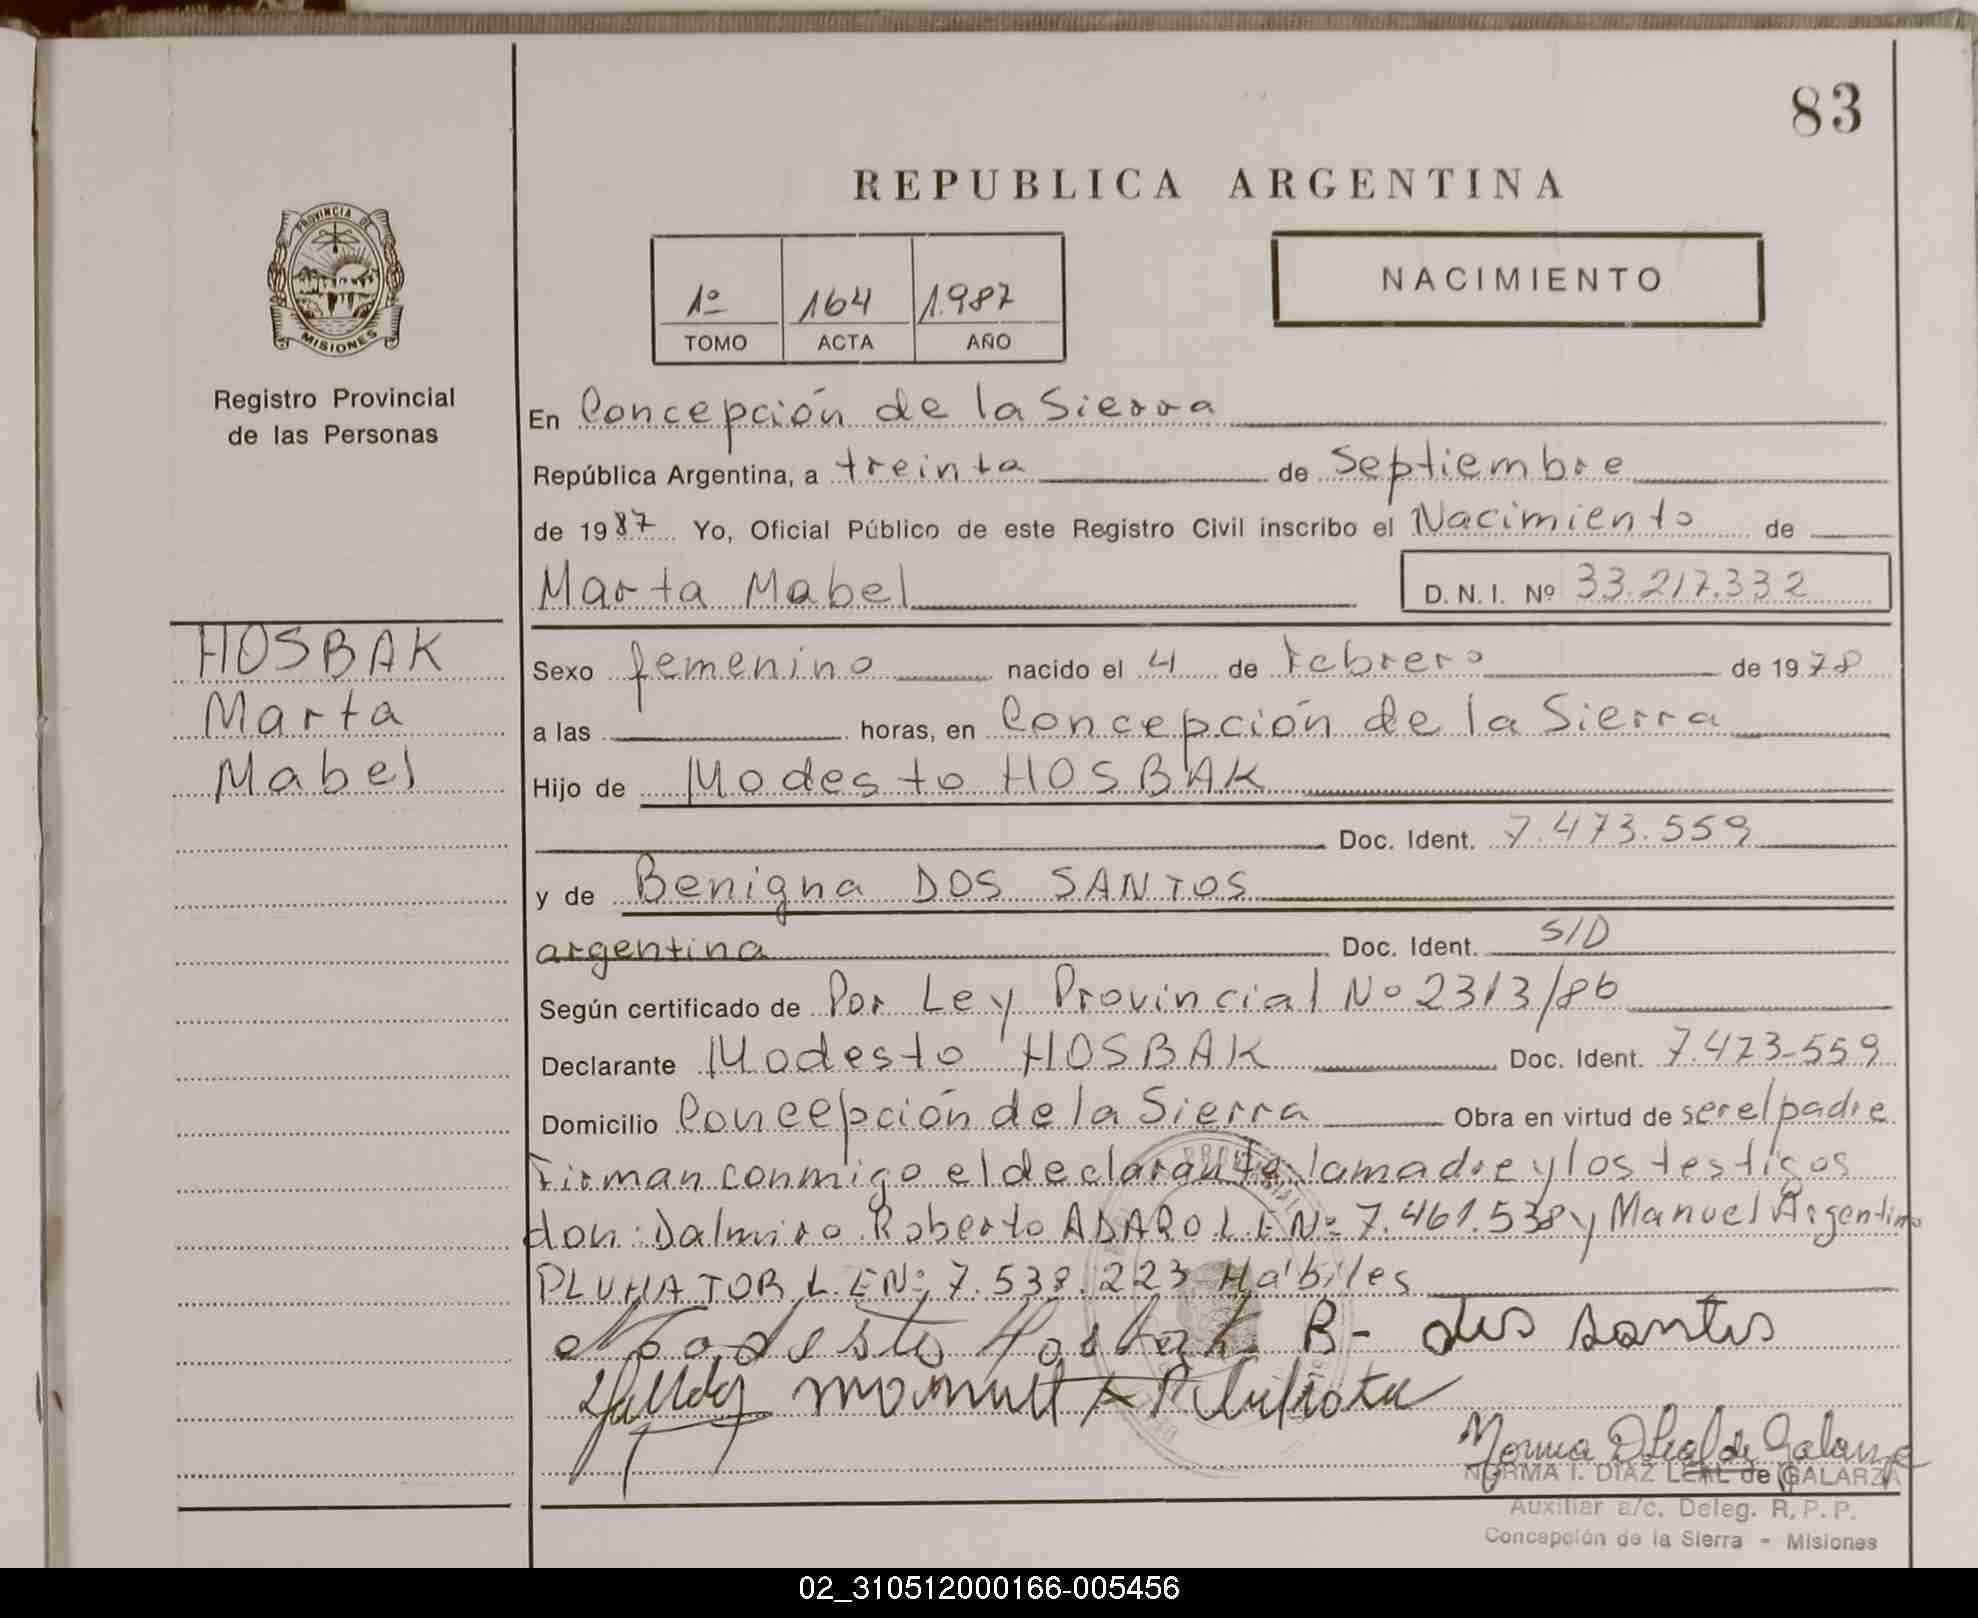 83
REPUBLICA ARGENTINA
PROVINCIA DE
MISIONES
Registro Provincial
de las Personas
1º 164 1.987
TOMO ACTA AÑO
NACIMIENTO
En Concepción de la Sierra
República Argentina, a treinta de Septiembre
de 1987 Yo, Oficial Público de este Registro Civil inscribo el Nacimiento de
Marta Mabel D.N.I. Nº 33.217.332
HOSBAK
Marta
Mabel
Sexo femenino nacido el 4 de Febrero de 1978
a las horas, en Concepción de la Sierra
Hijo de Modesto HOSBAK
Doc. Ident. 7.473.559
y de Benigna DOS SANTOS
argentina Doc. Ident. S/D
Según certificado de Por Ley Provincial Nº 2313/86
Declarante Modesto HOSBAK Doc. Ident. 7.473-559
Domicilio Concepción de la Sierra Obra en virtud de ser el padre
Firman conmigo el declarante, la madre y los testigos
don: Dalmiro Roberto ADARO L.E Nº 7.461.538 y Manuel Argentino
PLUHATOR L.E Nº 7.538.223 Hábiles
Modesto Hosbak B- dos santos
manuel A
Norma D Leal de Galarza
NORMA I. DIAZ LEAL de GALARZA
Auxiliar a/c. Deleg. R.P.P.
Concepción de la Sierra - Misiones
02_310512000166-005456